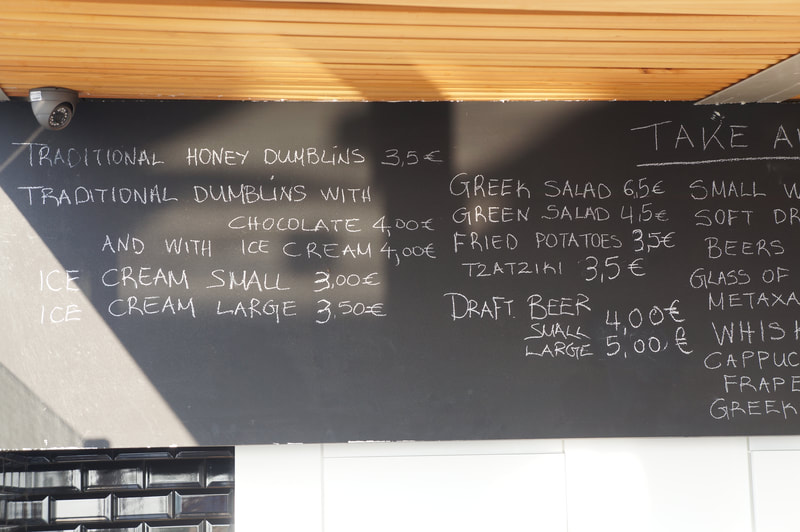 TRADITIONAL HONEY DUMBLINS 3,5€
TRADITIONAL DUMBLINS WITH
CHOCOLATE 4,00€
AND WITH ICE CREAM 4,00€
ICE CREAM SMALL 3,00€
ICE CREAM LARGE 3,50€
GREEK SALAD 6,5€
GREEN SALAD 4,5€
FRIED POTATOES 3,5€
TZATZIKI 3,5€
DRAFT BEER
SMALL 4,00€
LARGE 5,00€
TAKE
SMALL
SOFT
BEERS
GLASS OF
METAXA
GREEK